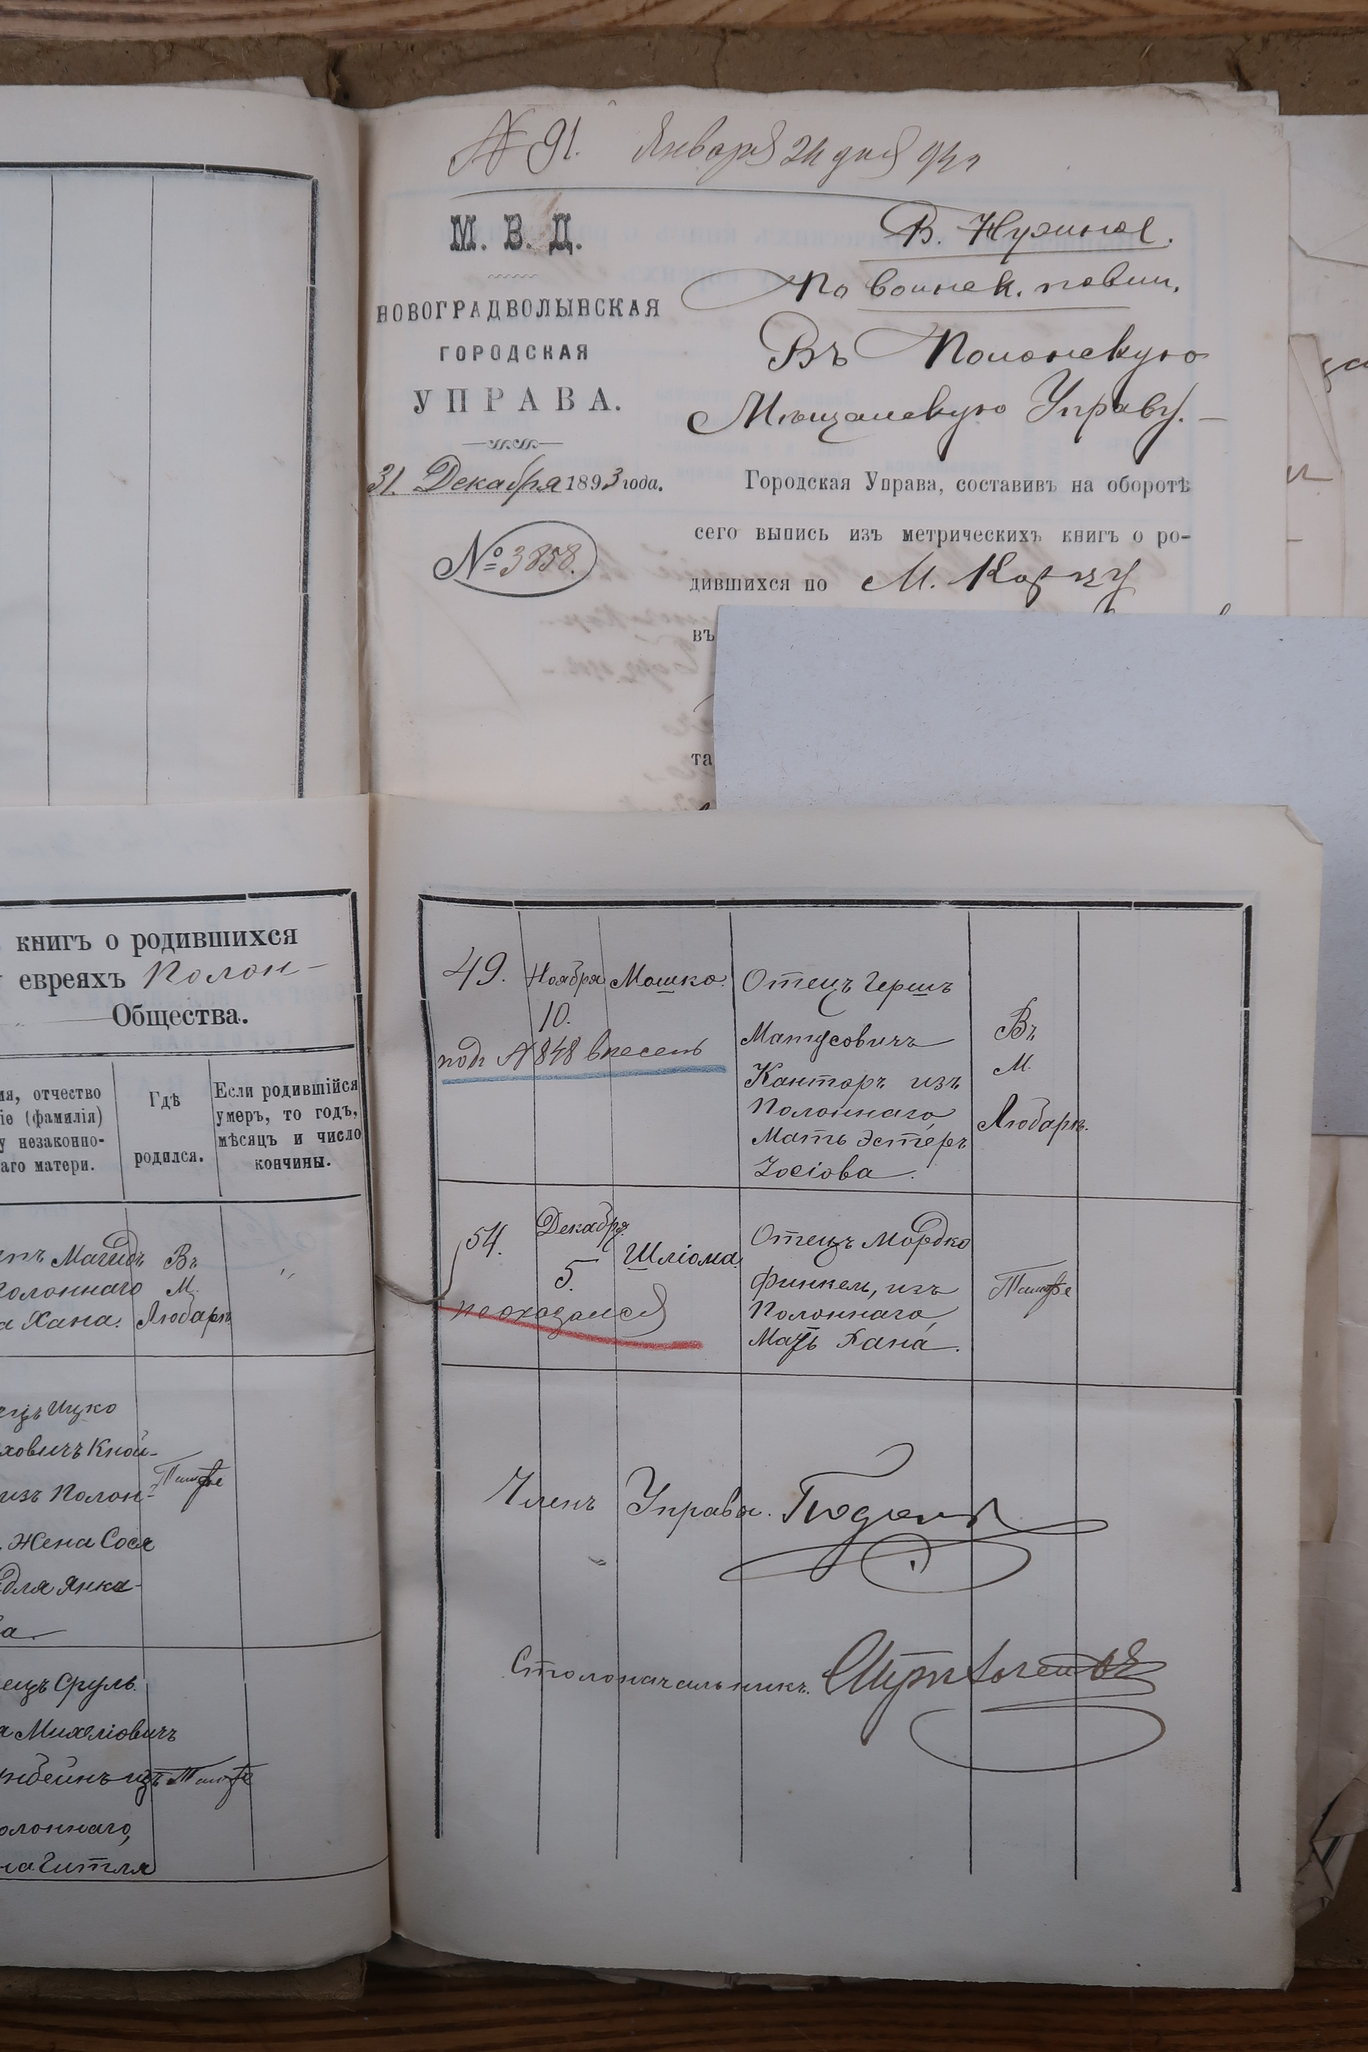 № 91. Января 24 дня 94 г
М. В. Д.
НОВОГРАДВОЛЫНСКАЯ
ГОРОДСКАЯ
УПРАВА.
31. Декабря 1893 года.
№ 3858.
В. Нужное.
По воинск. повин.
Въ Полонскую
Мѣщанскую Управу.
Городская Управа, составивъ на оборотѣ
сего выпись изъ метрическихъ книгъ о ро-
дившихся по М. Корцу
въ
та
книгъ о родившихся
евреяхъ Полон-
Общества.
ія, отчество
іе (фамилія)
у незаконно-
аго матери.
Гдѣ
родился.
Если родившійся
умеръ, то годъ,
мѣсяцъ и число
кончины.
Магидъ
Полоннаго
а Хана.
Въ
М.
Любаръ
Ицко
ховичъ Кной-
изъ Полон-
Жена Сося
для Янке-
ва.
Тамже
ецъ Сруль
Михеліовичъ
нбейнъ изъ
олоннаго,
на Гитля
Тамже
49.
Ноября
10.
Мошко.
подъ № 848 внесенъ
Отецъ Гершъ
Матусовичъ
Канторъ изъ
Полоннаго,
Мать Эстеръ
Іосіова.
Въ
М.
Любаръ.
54.
Декабря
5.
Шліома.
не оказался
Отецъ Мордко
Финкель, изъ
Полоннаго,
Мать Хана.
Тамже
Членъ Управы.
Столоначальникъ.